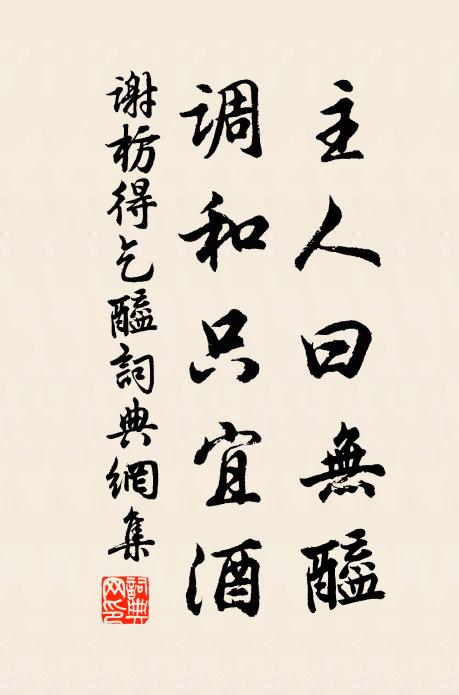 主人曰無醯
调和只宜酒
谢枋得乞醯詞典網集
詞典网印